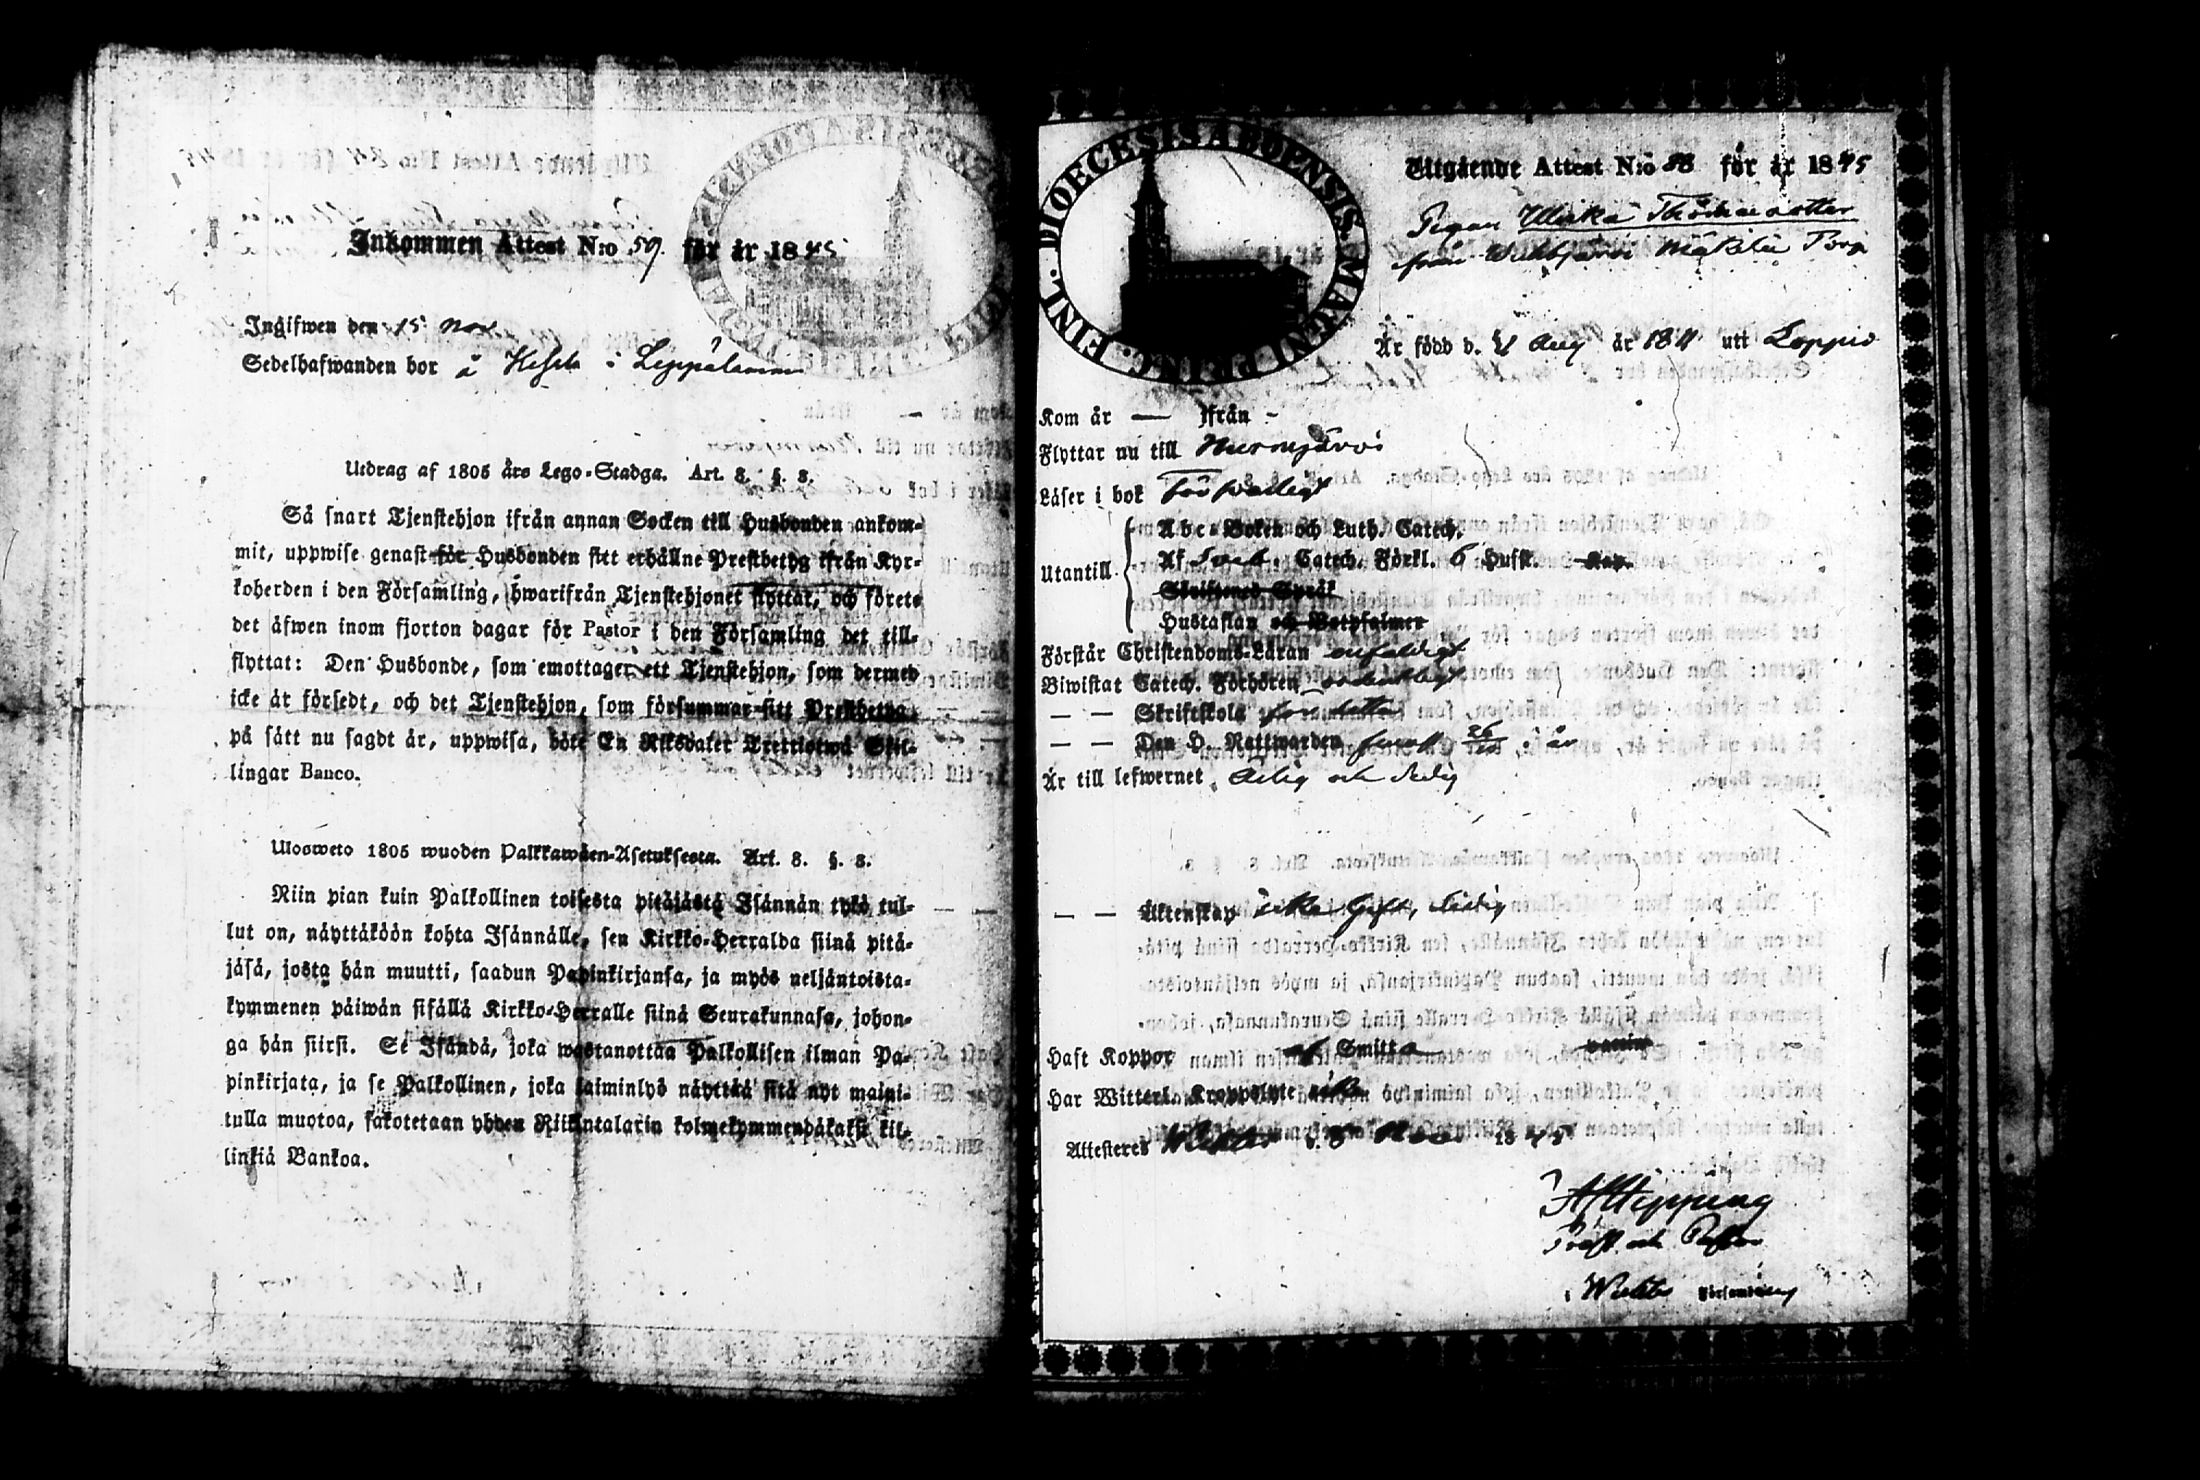 Inkommen Attest N:o 59. för år 1845
Ingifwen den 15 Nov
Sedelhafwanden bor å i
Utdrag af 1805 års Lego-Stadga. Art. 8. §. 8.
Så snart Tjenstehjon ifrån annan Socken till Husbonden ankom-
mit, uppwise genast för Husbonden sitt erhållne Prestbetyg ifrån Kyr-
koherden i den Församling, hwarifrån Tjenstehjonet flyttat, och förete
det åfwen inom fjorton dagar för Pastor i den Församling det till-
flyttat: Den Husbonde, som emottager ett Tjenstehjon, som dermed
icke är försedt, och det Tjenstehjon, som försummar sitt Prestbetyg,
på sätt nu sagdt är, uppwisa, böte En Riksdaler Trettiotwå Skil-
lingar Banco.
Ulosweto 1805 wuoden Palkkawäen-Asetuksesta. Art. 8. §. 8.
Niin pian kuin Palkollinen toisesta pitäjästä Isännän tykö tul-
lut on, näyttäköön kohta Isännälle, sen Kirkko-Herralda siinä pitä-
jäsä, josta hän muutti, saadun Papinkirjansa, ja myös neljäntoista-
kymmenen päiwän sisällä Kirkko-Herralle siinä Seurakunnasa, johon-
ga hän siirsi. Se Isändä, joka wastanottaa Palkollisen ilman Pa-
pinkirjata, ja se Palkollinen, joka laiminlyö näyttää sitä nyt maini-
tulla muotoa, sakotetaan yhden Riikintalarin kolmekymmendäkaksi kil-
linkiä Bankoa.
DIOECESIS ABOENSIS MAGNI PRINC. FINL.
Utgående Attest N:o 88 för år 1845
Pigan Ulrika Thomasdotter
från Mäkilä Torp
Är född d. 21 Aug år utt Loppis
Kom år — ifrån -
Flyttar nu till Nurmijärvi
Läser i bok Försvarligt
Utantill
Abc-Boken och Luth. Catech.
Af Catech. Förkl. 6 Hufst. Kap.
Skriftenes Språk
Hustaflan och Botpsalmer
Förstår Christendoms-Läran enfaldigt
Biwistat Catech. Förhören ordentligt
— — Skriftskola
— — Den H. Nattwarden i år
Är till lefwernet ärlig och sedig
— — Äktenskap icke Gift, ledig
Haft Koppor af Smitta vaccin
Har Witterl. Kroppslyte icke
Attesteres Wichtis d. 8 Nov 1845
Prost och Pastor
i Wichtis Församling